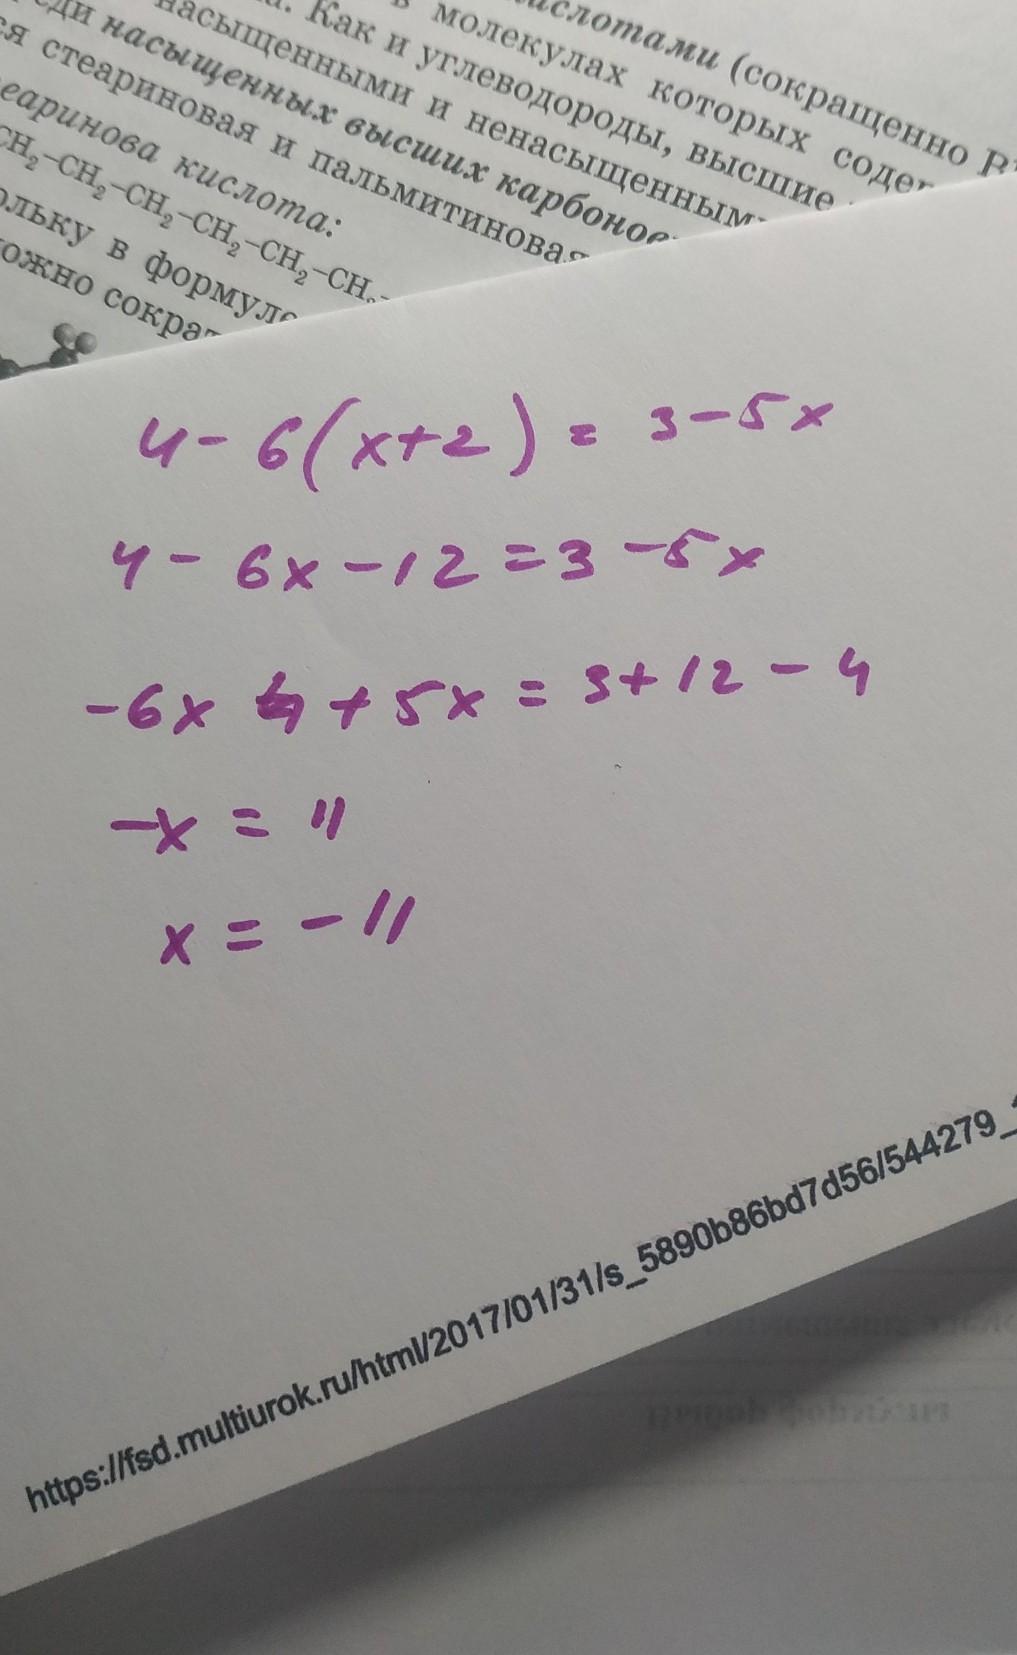 кислотами (сокращенно В
в молекулах которых содер
Как и углеводороды, высшие
насыщенными и ненасыщенным
насыщенных высших карбонов
стеариновая и пальмитиновая
кислота:
CH₂–CH₂–CH₂–CH₂–CH₂–CH
в формуле
сократ
4 - 6(x+2) = 3 - 5x
4 - 6x - 12 = 3 - 5x
-6x + 5x = 3 + 12 - 4
-x = 11
x = -11
https://fsd.multiurok.ru/html/2017/01/31/s_5890b86bd7d56/544279_